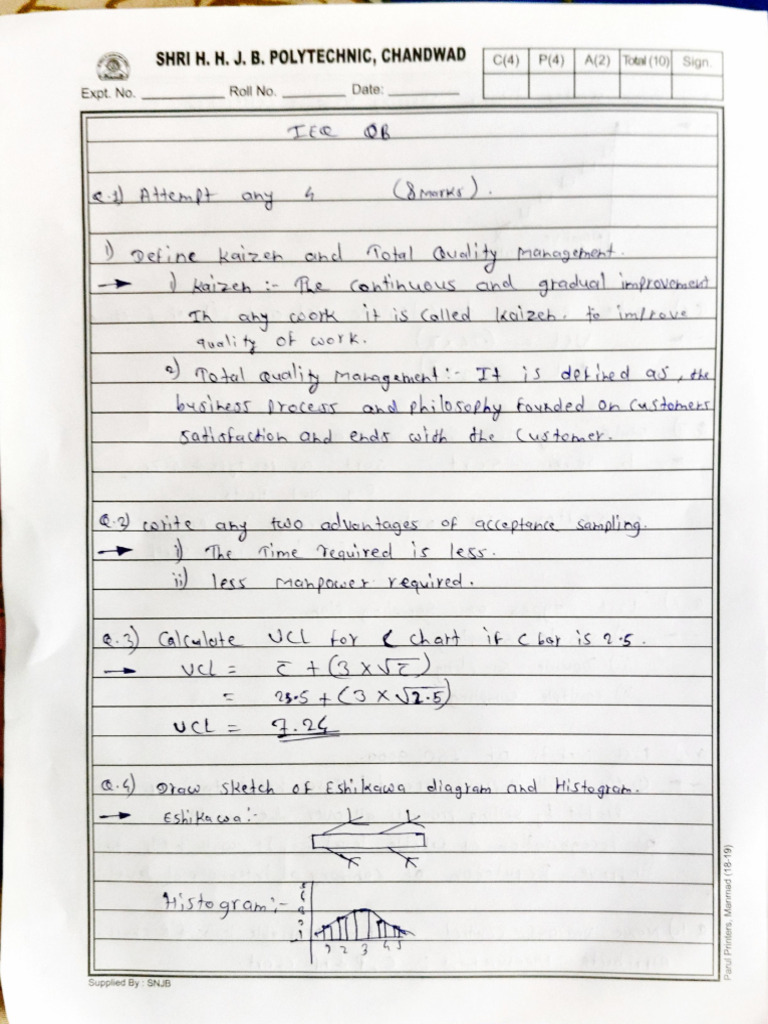 SHRI H. H. J. B. POLYTECHNIC, CHANDWAD
C(4) P(4) A(2) Total (10) Sign.
Expt. No. Roll No. Date:
IEQ QB
Q.1) Attempt any 4 (8 Marks).
1) Define Kaizen and Total Quality Management.
→ 1) Kaizen :- The continuous and gradual improvement
In any work it is called kaizen. to improve
quality of work.
2) Total Quality Management:- It is defined as, the
business process and philosophy founded on customers
satisfaction and ends with the customer.
Q.2) write any two advantages of acceptance sampling.
→ i) The Time required is less.
ii) less Manpower required.
Q.3) Calculate UCL for C chart if C bar is 2.5.
→ UCL = c̅ + (3 × √c̅)
= 2.5 + (3 × √2.5)
UCL = 7.24
Q.4) Draw sketch of Eshikawa diagram and Histogram.
→ Eshikawa:-
Histogram:-
1 2 3 4 5
Supplied By : SNJB
Parul Printers, Manmad (18-19)